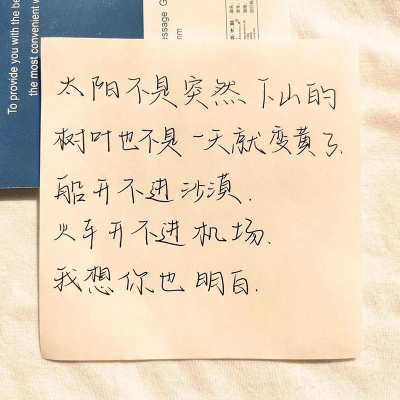 To provide you with the be
the most convenient w
ssage G
nm
太阳不是突然下山的
树叶也不是一天就变黄了.
船开不进沙漠.
火车开不进机场.
我想你也明白.